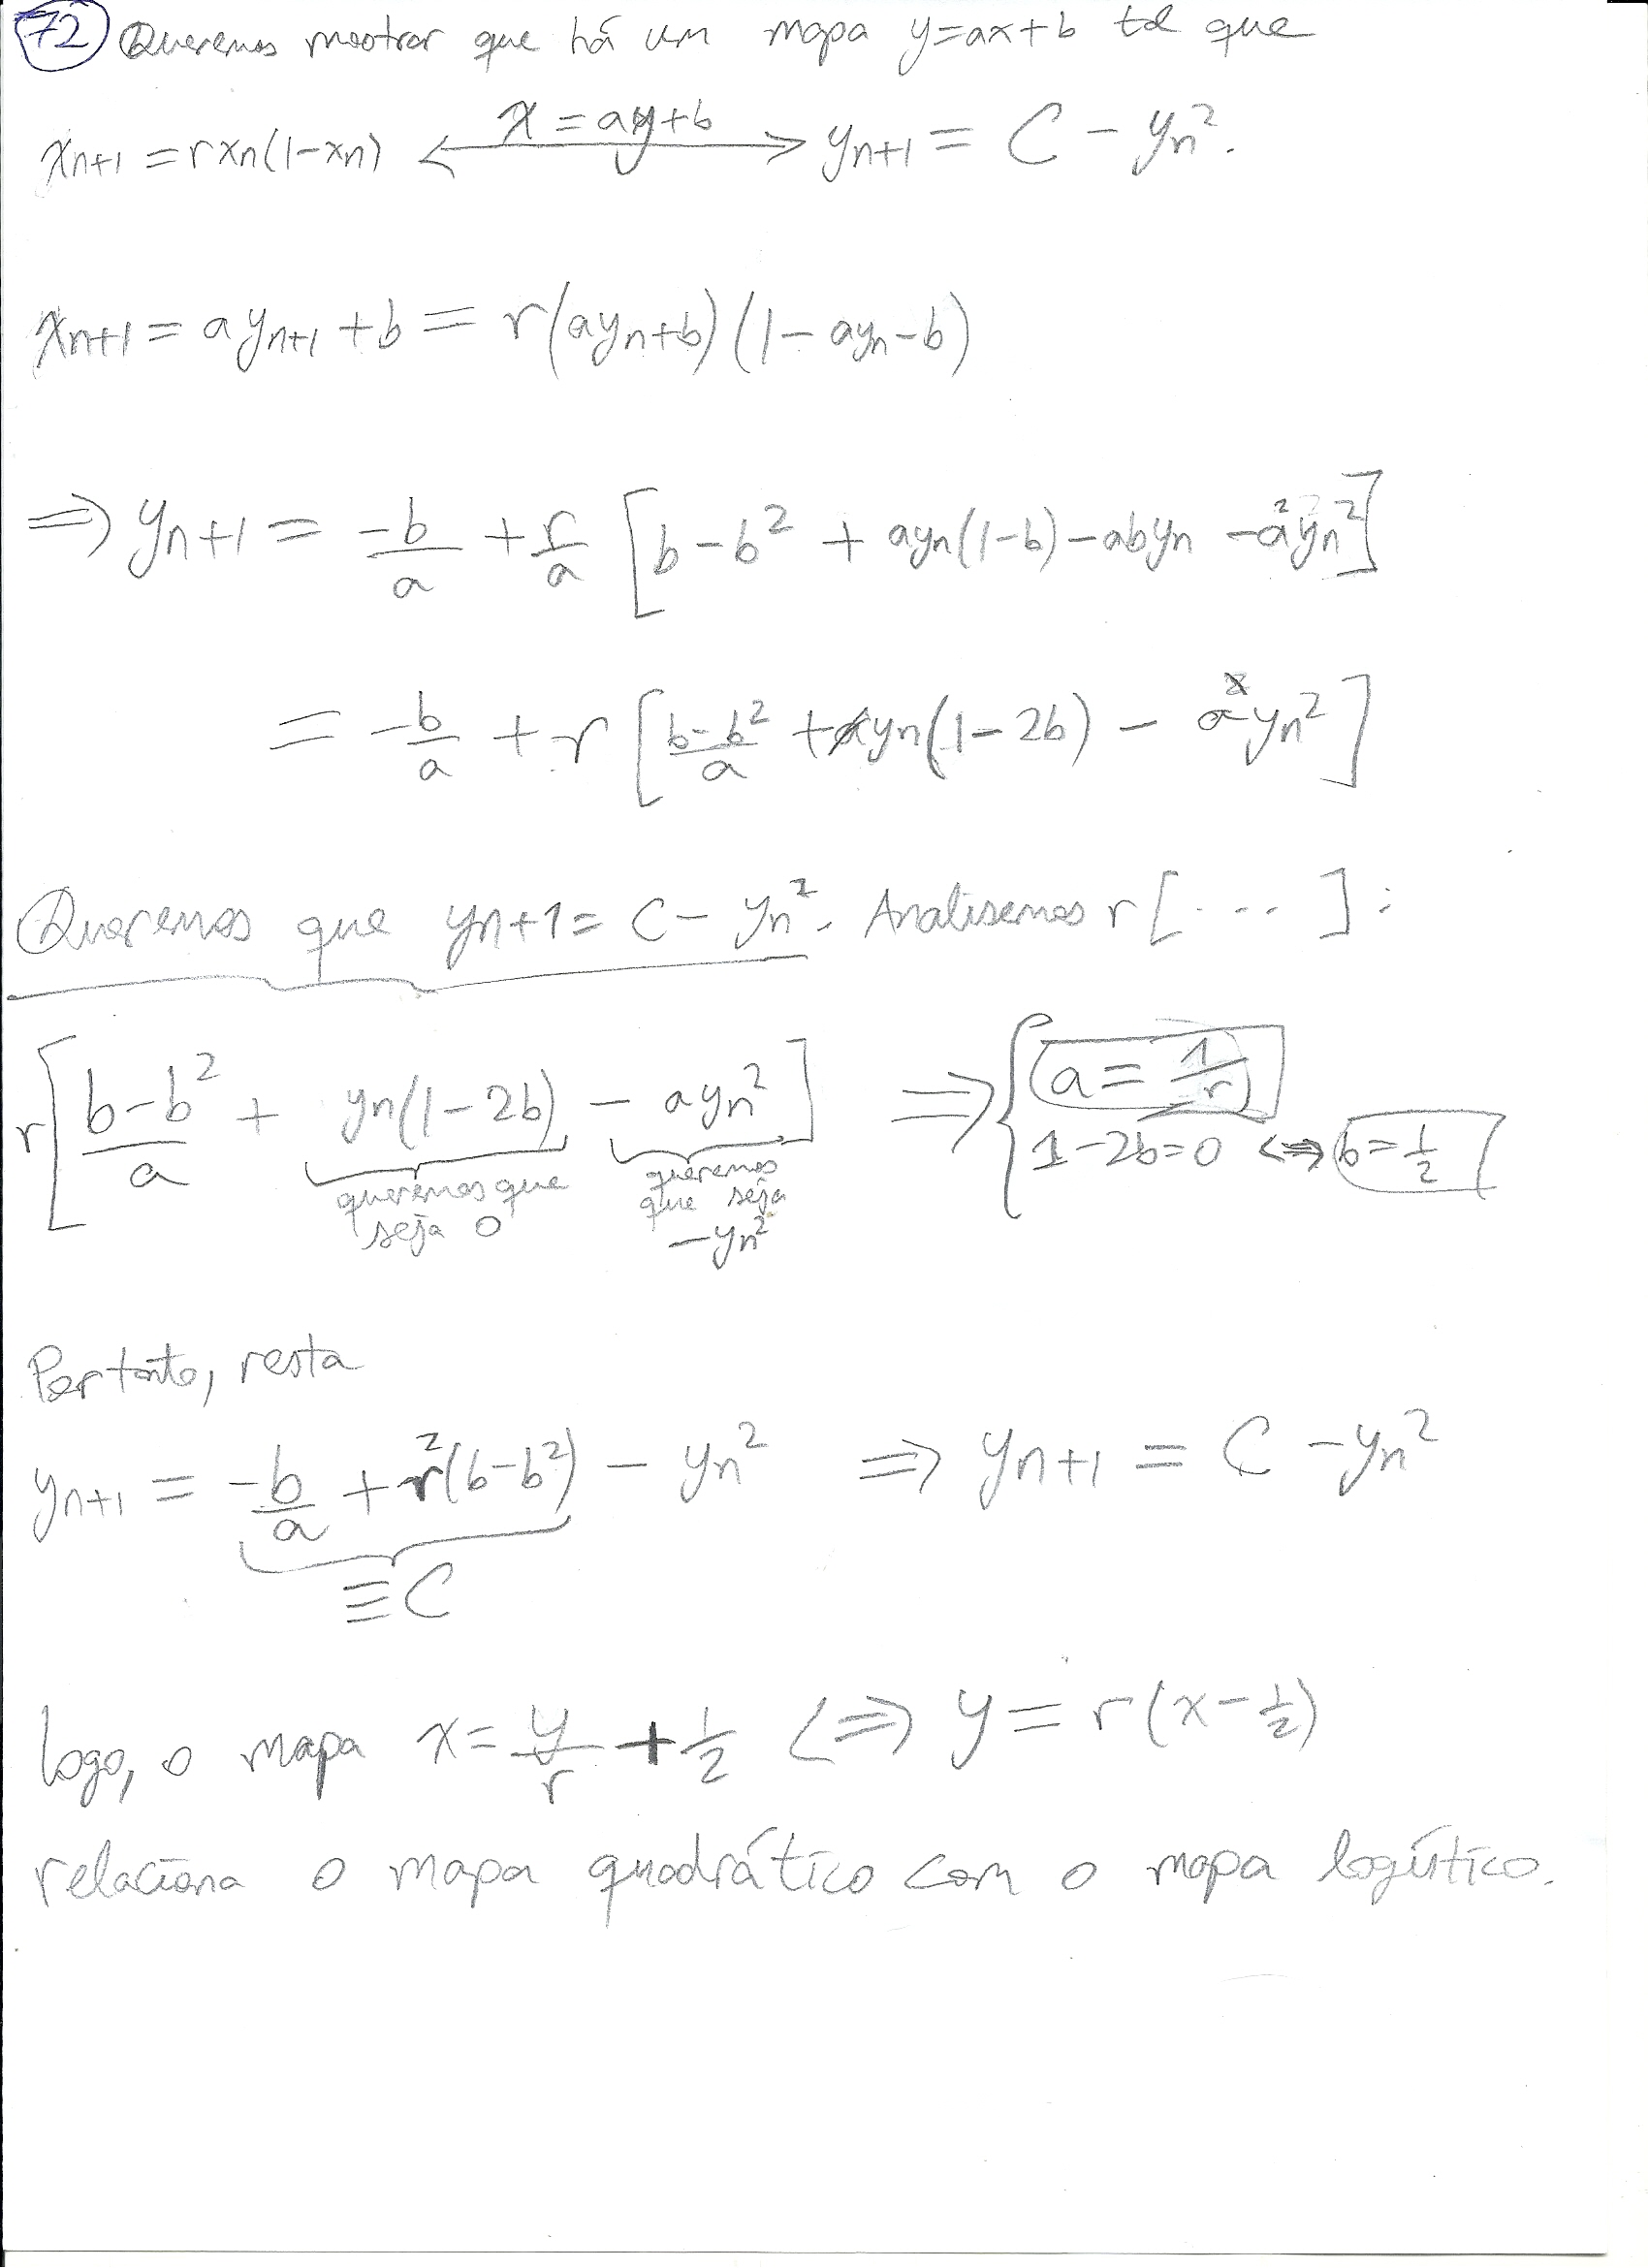 72 Queremos mostrar que há um mapa y=ax+b tal que
xn+1 = rxn(1-xn) <—— x = ay+b ——> yn+1 = C - yn².
xn+1 = ayn+1 + b = r(ayn+b)(1-ayn-b)
⇒ yn+1 = -b/a + r/a [b-b² + ayn(1-b) - abyn - a²yn²]
= -b/a + r [(b-b²)/a + yn(1-2b) - ayn²]
Queremos que yn+1 = C - yn². Analisemos r[...]:
r[(b-b²)/a + yn(1-2b) - ayn²] ⇒ { a = 1/r
1-2b=0 <=> b=1/2
queremos que seja 0
queremos que seja -yn²
Portanto, resta
yn+1 = -b/a + r²(b-b²) - yn² ⇒ yn+1 = C - yn²
≡ C
Logo, o mapa x = y/r + 1/2 <=> y = r(x-1/2)
relaciona o mapa quadrático com o mapa logístico.